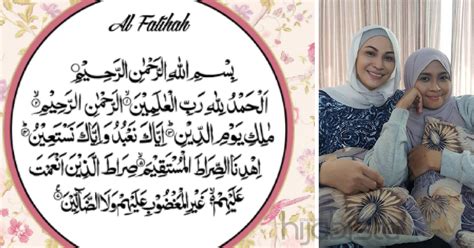 Al Fatihah
بِسْمِ اللهِ الرَّحْمٰنِ الرَّحِيْمِ
اَلْحَمْدُ لِلّٰهِ رَبِّ الْعٰلَمِيْنَ ۙ الرَّحْمٰنِ الرَّحِيْمِ ۙ
مٰلِكِ يَوْمِ الدِّيْنِ ۗ اِيَّاكَ نَعْبُدُ وَاِيَّاكَ نَسْتَعِيْنُ ۗ
اِهْدِنَا الصِّرَاطَ الْمُسْتَقِيْمَ ۙ صِرَاطَ الَّذِيْنَ اَنْعَمْتَ
عَلَيْهِمْ ۙ غَيْرِ الْمَغْضُوْبِ عَلَيْهِمْ وَلَا الضَّآلِّيْنَ